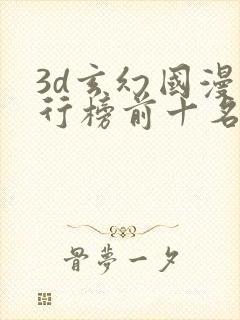 3d玄幻國漫
行榜前十名
骨夢一夕